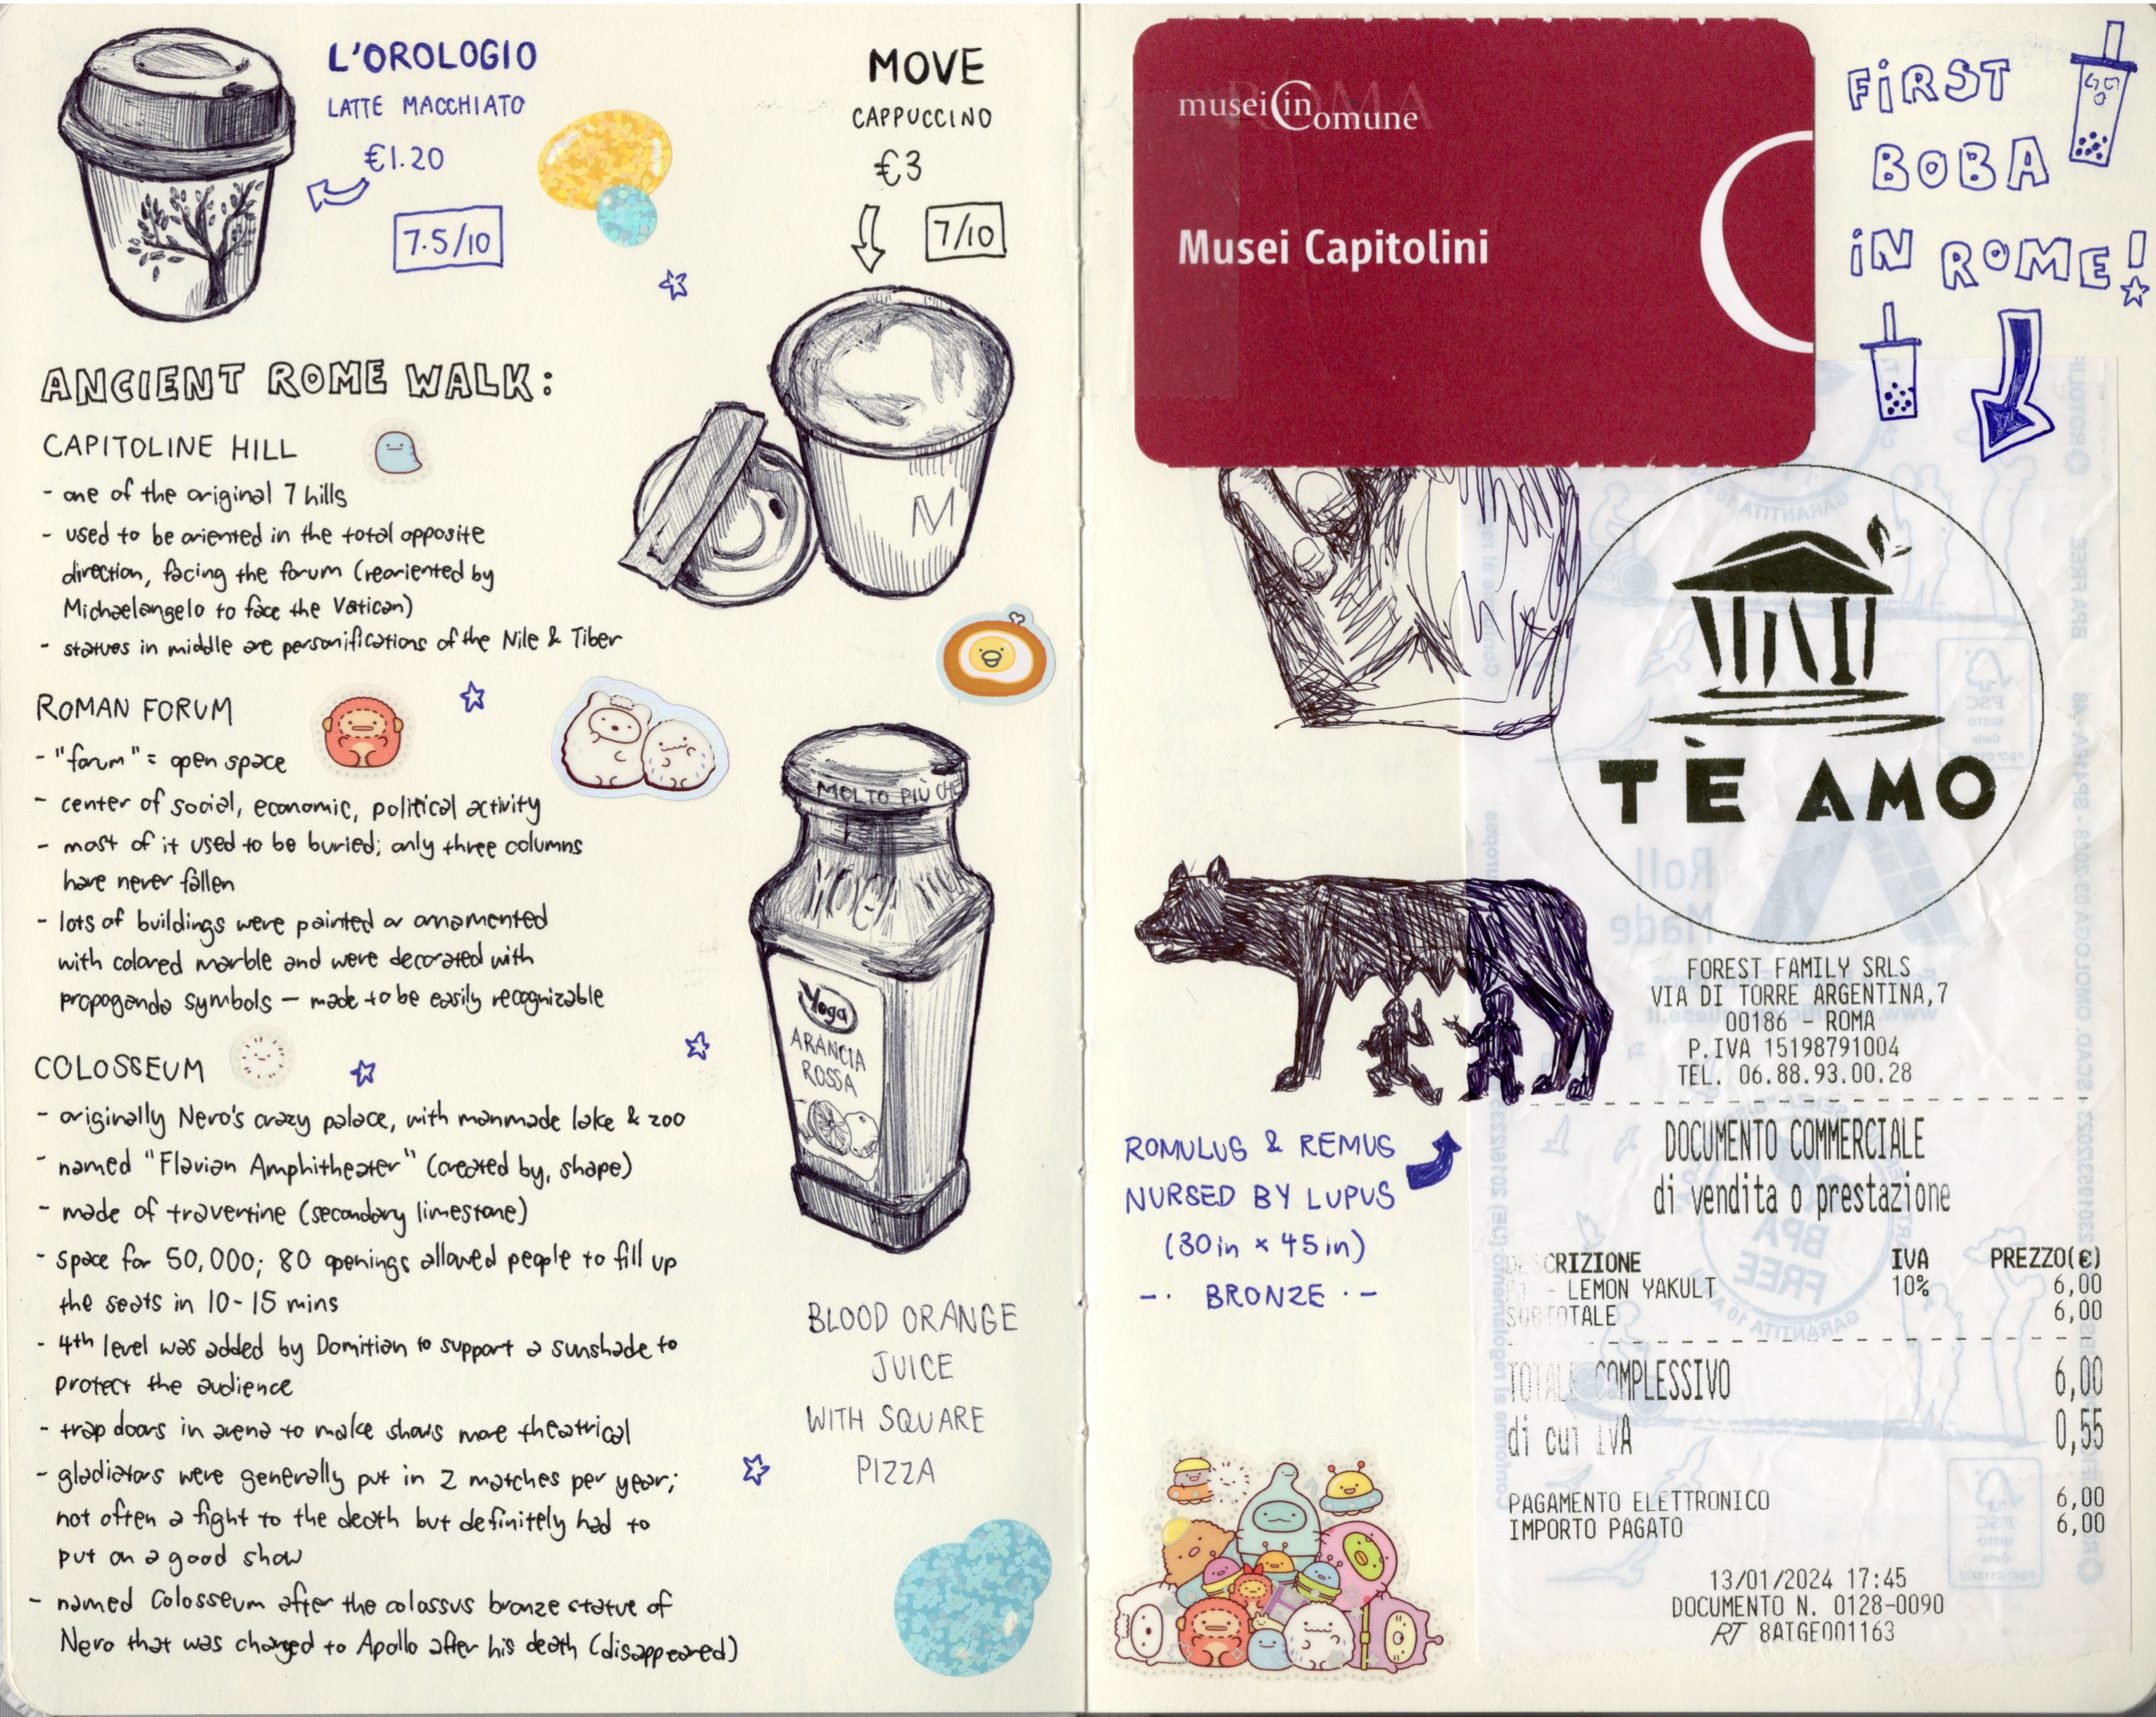 L'OROLOGIO
LATTE MACCHIATO
€1.20
7.5/10
MOVE
CAPPUCCINO
€3
7/10
M
ANCIENT ROME WALK:
CAPITOLINE HILL
- one of the original 7 hills
- used to be oriented in the total opposite
direction, facing the forum (reoriented by
Michaelangelo to face the Vatican)
- statues in middle are personifications of the Nile & Tiber
ROMAN FORUM
- "forum" = open space
- center of social, economic, political activity
- most of it used to be buried; only three columns
have never fallen
- lots of buildings were painted or ornamented
with colored marble and were decorated with
propoganda symbols — made to be easily recognizable
COLOSSEUM
- originally Nero's crazy palace, with manmade lake & zoo
- named "Flavian Amphitheater" (created by, shape)
- made of travertine (secondary limestone)
- space for 50,000; 80 openings allowed people to fill up
the seats in 10-15 mins
- 4th level was added by Domitian to support a sunshade to
protect the audience
- trap doors in arena to make shows more theatrical
- gladiators were generally put in 2 matches per year;
not often a fight to the death but definitely had to
put on a good show
- named Colosseum after the colossus bronze statue of
Nero that was changed to Apollo after his death (disappeared)
MOLTO PIÙ CHE
Yoga
ARANCIA
ROSSA
BLOOD ORANGE
JUICE
WITH SQUARE
PIZZA
ROMA
musei in Comune
Musei Capitolini
FIRST
BOBA
IN ROME!
ROMULUS & REMUS
NURSED BY LUPUS
(30in × 45in)
-· BRONZE ·-
TÈ AMO
FOREST FAMILY SRLS
VIA DI TORRE ARGENTINA,7
00186 - ROMA
P.IVA 15198791004
TEL. 06.88.93.00.28
DOCUMENTO COMMERCIALE
di vendita o prestazione
DESCRIZIONE IVA PREZZO(€)
- LEMON YAKULT 10% 6,00
SUBTOTALE 6,00
TOTALE COMPLESSIVO 6,00
di cui IVA 0,55
PAGAMENTO ELETTRONICO 6,00
IMPORTO PAGATO 6,00
13/01/2024 17:45
DOCUMENTO N. 0128-0090
RT 8AIGE001163
Roll
Made
BPA
FREE